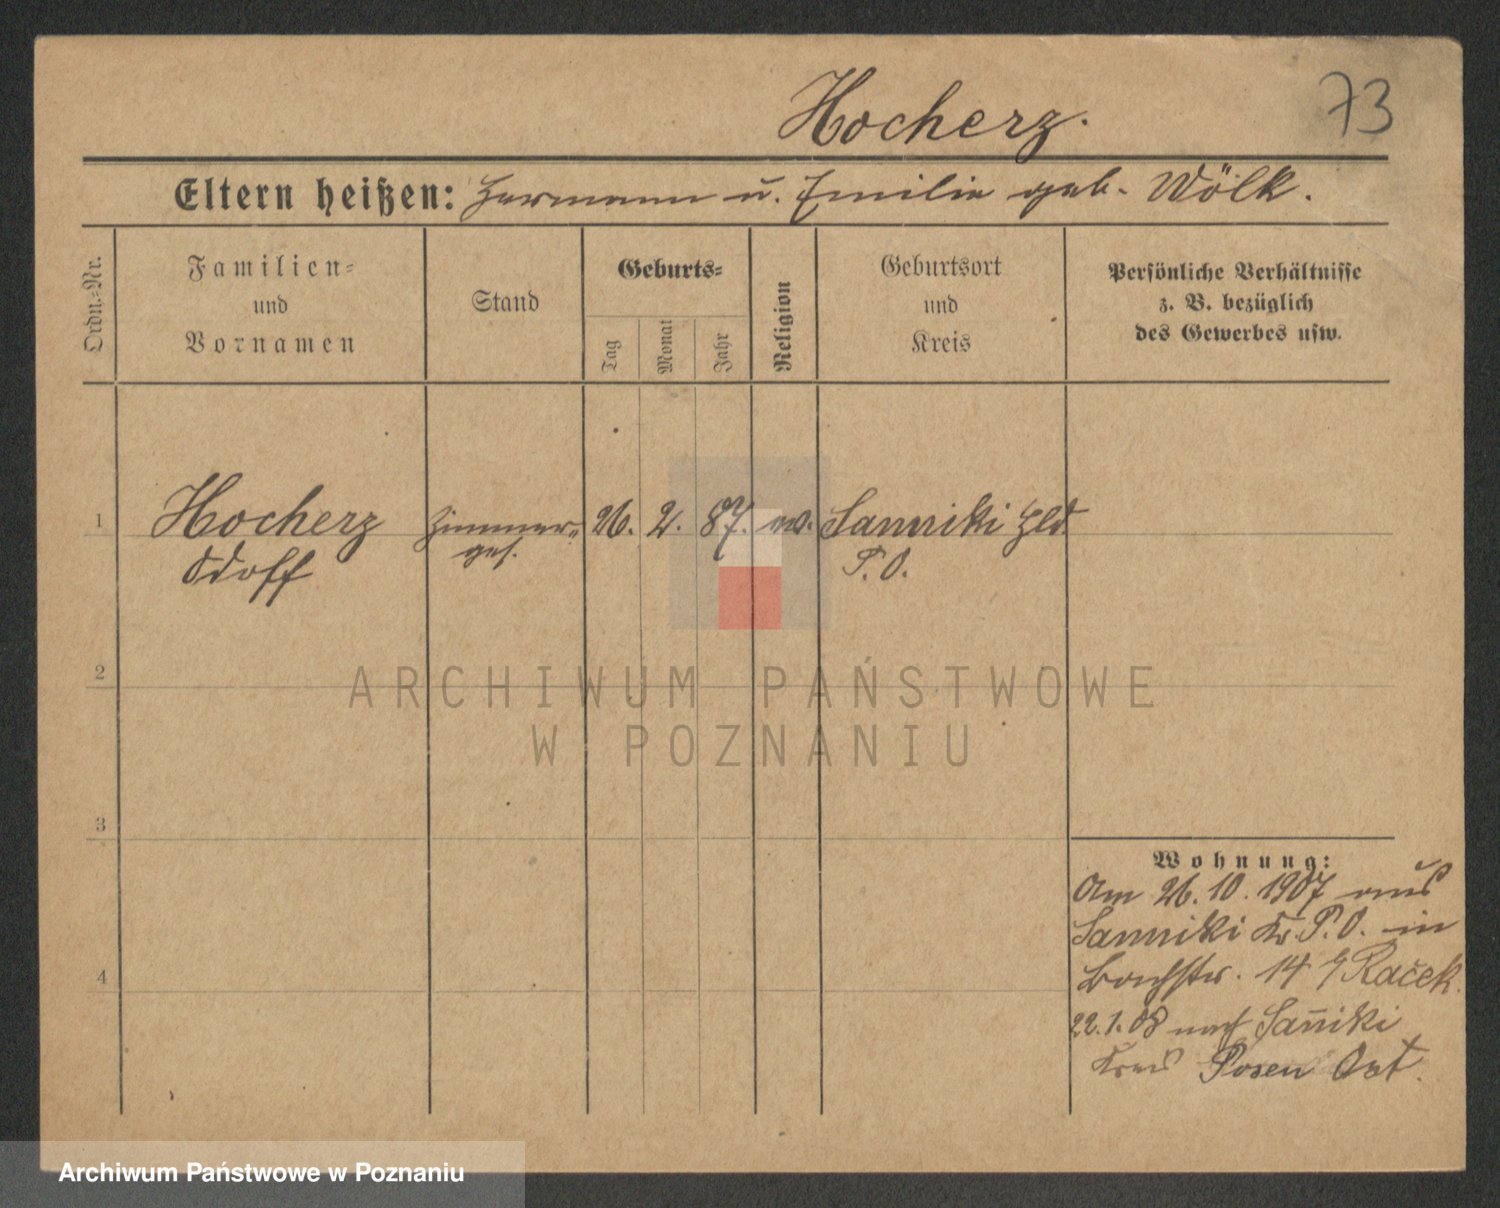 Hocherz.
73
Eltern heißen: Hermann u. Emilie geb. Wölk.
Ordn.-Nr.
Familien-
und
Vornamen
Stand
Geburts-
Tag
Monat
Jahr
Religion
Geburtsort
und
Kreis
Persönliche Verhältnisse
z. B. bezüglich
des Gewerbes usw.
1
Hocherz
Zimmer-
26. 2. 87. ev. Sanniki Hld
ges.
P. O.
2
ARCHIWUM PAŃSTWOWE
W POZNANIU
3
Wohnung:
Am 26. 10. 1907 aus
Sanniki Kr. P. O. in
14 Raček.
22. 1. 08 nach San̄iki
Kreis Posen Ost.
4
Archiwum Państwowe w Poznaniu